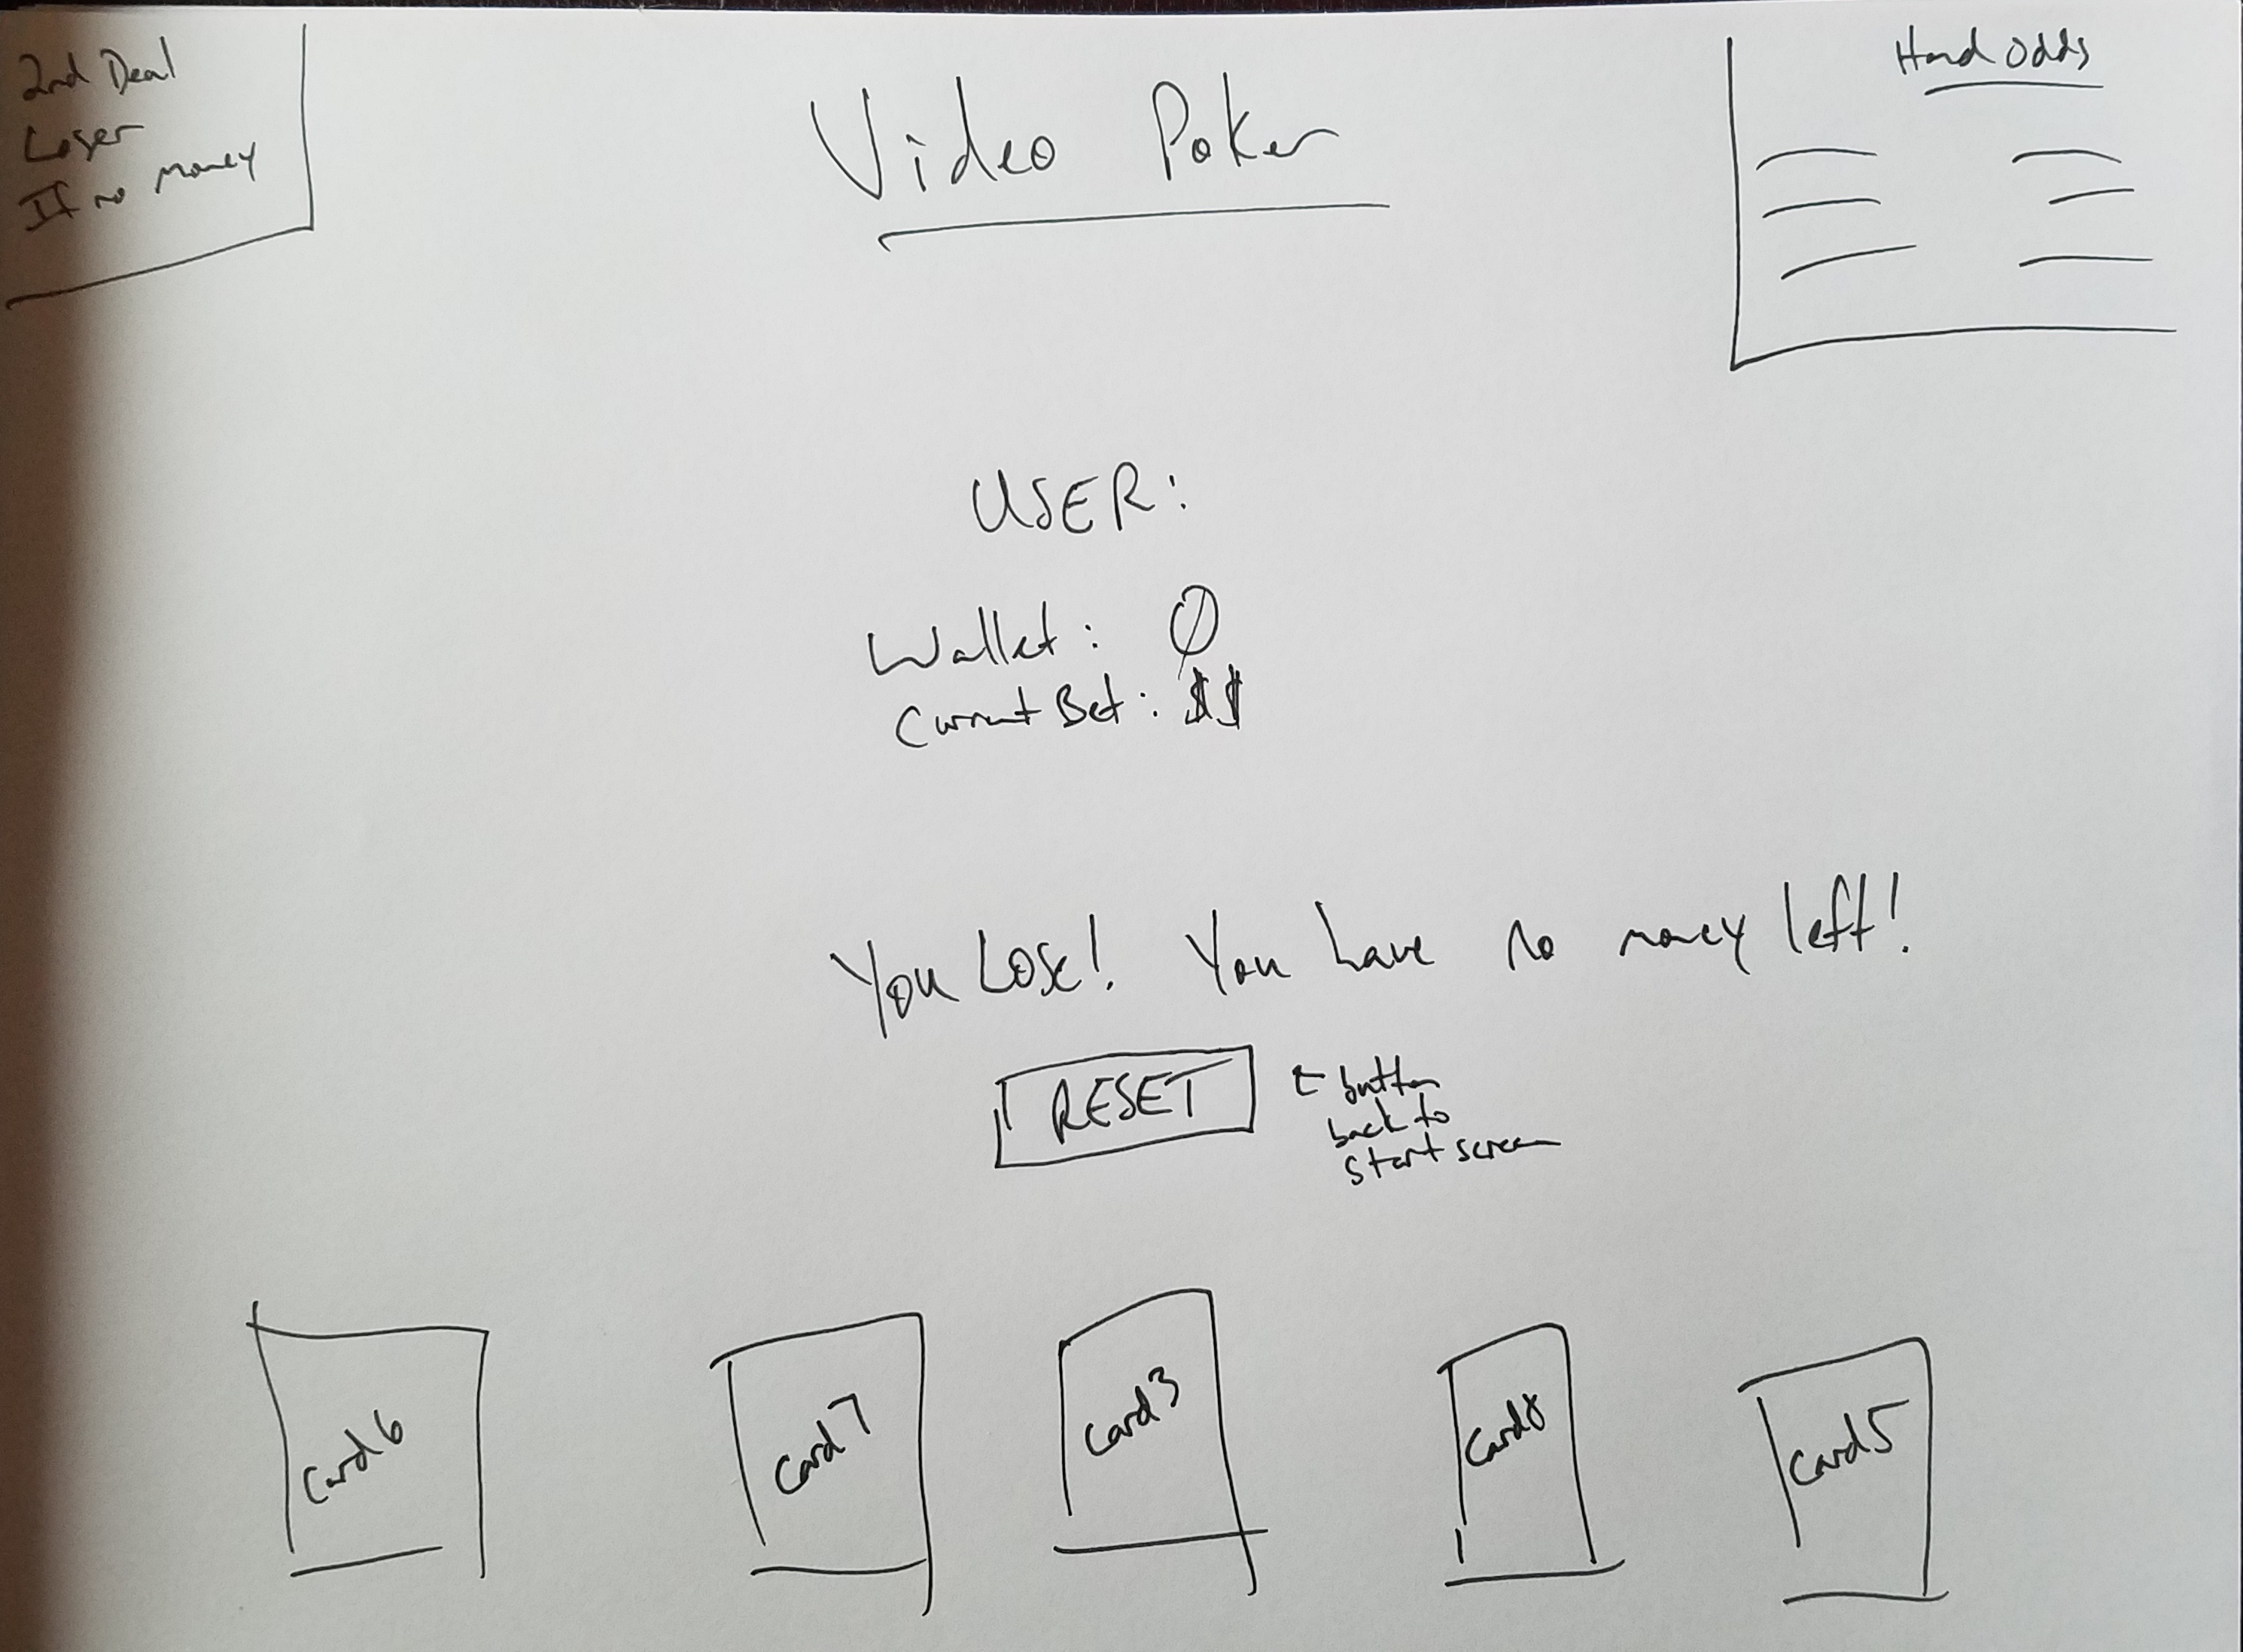 2nd Deal
Loser
If no money
Video Poker
Hand Odds
USER:
Wallet: Ø
Current Bet: $$
You Lose! You have no money left!
RESET
← button
back to
start screen
Card 6
Card 7
Card 3
Card 8
Card 5